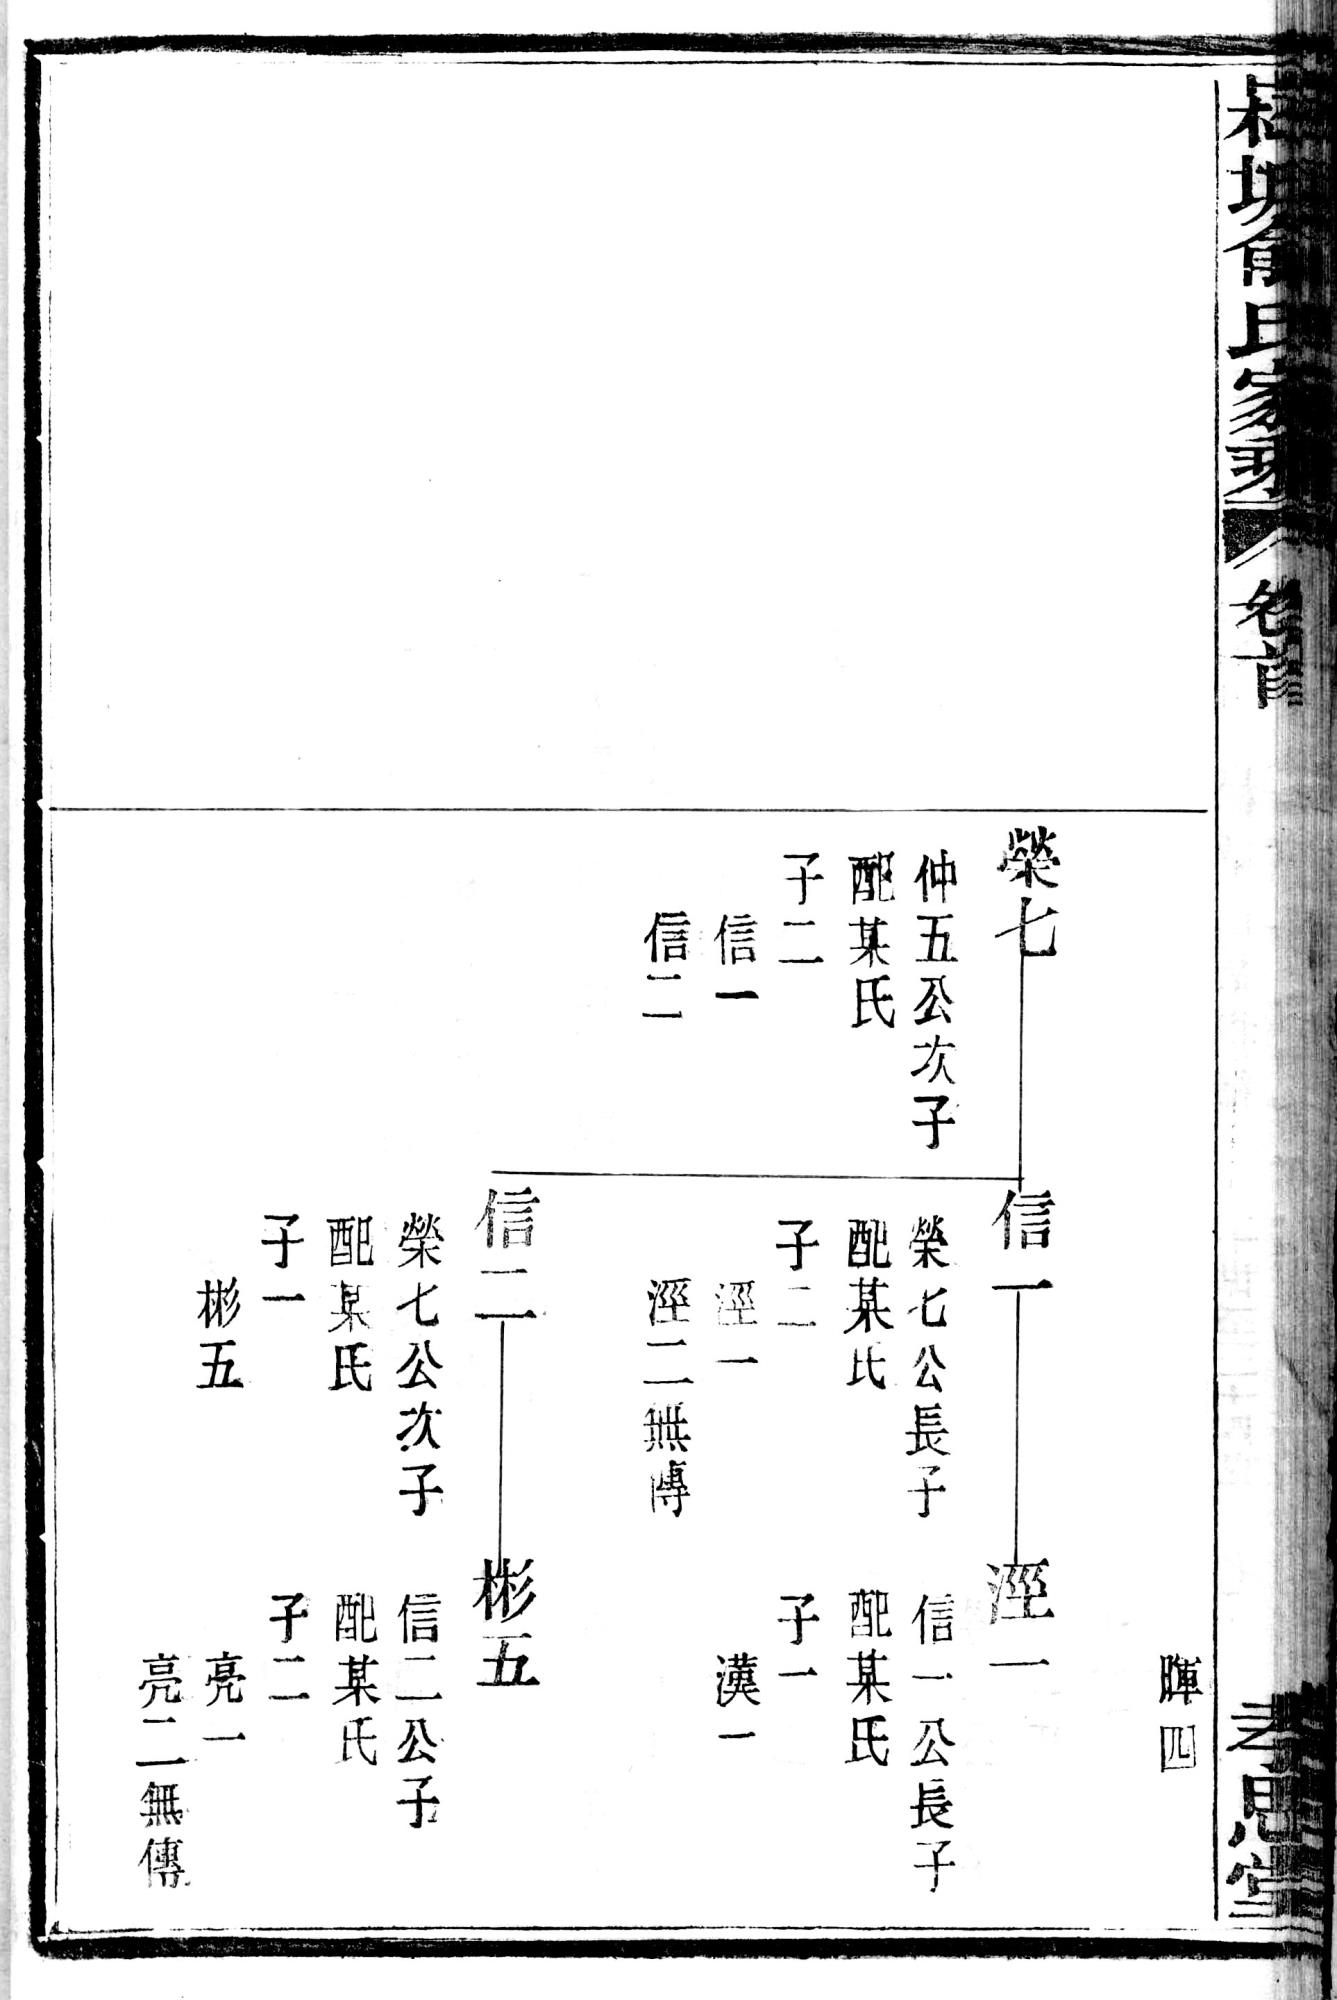 氏家
孝思堂
暉四
榮七
仲五公次子
配某氏
子二
信一
信二
信一
榮七公長子
配某氏
子二
涇一
涇二無傳
信二
榮七公次子
配某氏
子一
彬五
涇一
信一公長子
配某氏
子一
漢一
彬五
信二公子
配某氏
子二
亮一
亮二無傳